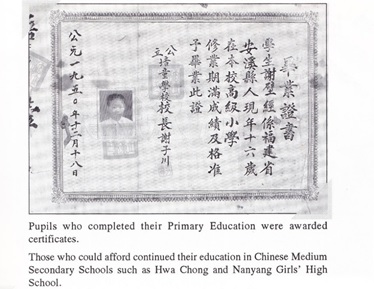 畢業證書
學生謝聖經係福建省
安溪縣人現年十六歲
在本校高級小學
修業期滿成績及格准
予畢業此證
公立培童學校校長謝子川
公元一九五〇年十二月十八日
Pupils who completed their Primary Education were awarded
certificates.
Those who could afford continued their education in Chinese Medium
Secondary Schools such as Hwa Chong and Nanyang Girls' High
School.